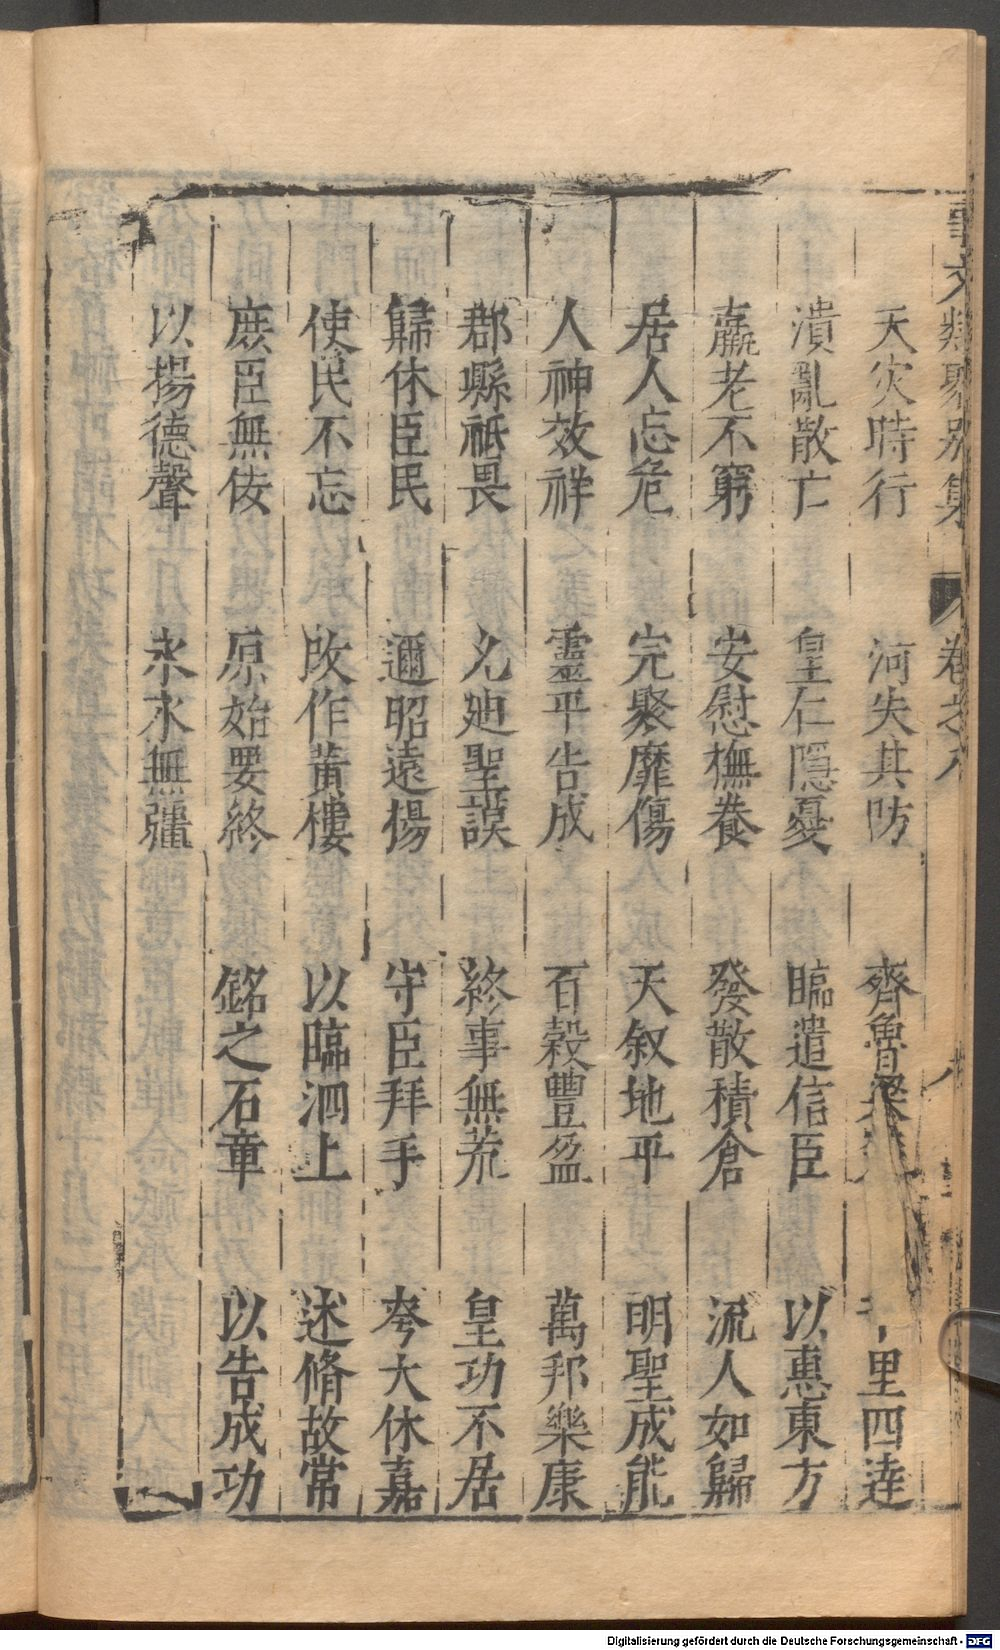 事文類聚別集 卷之八
天灾時行 河失其防 齊魯梁 里四逹
潰亂散亡 皇仁隱憂 臨遣信臣 以惠東方
羸老不窮 安慰撫養 發散積倉 流人如歸
居人忘危 完聚靡傷 天叙地平 明聖成能
人神效祥 靈平告成 百榖豐盈 萬邦樂康
郡縣祗畏 允廸聖謨 終事無荒 皇功不居
歸休臣民 邇昭遠揚 守臣拜手 夸大休嘉
使民不忘 改作黃樓 以臨泗上 述脩故常
庶臣無侫 原始要終 銘之石章 以告成功
以揚德聲 永永無疆
Digitalisierung gefördert durch die Deutsche Forschungsgemeinschaft - DFG